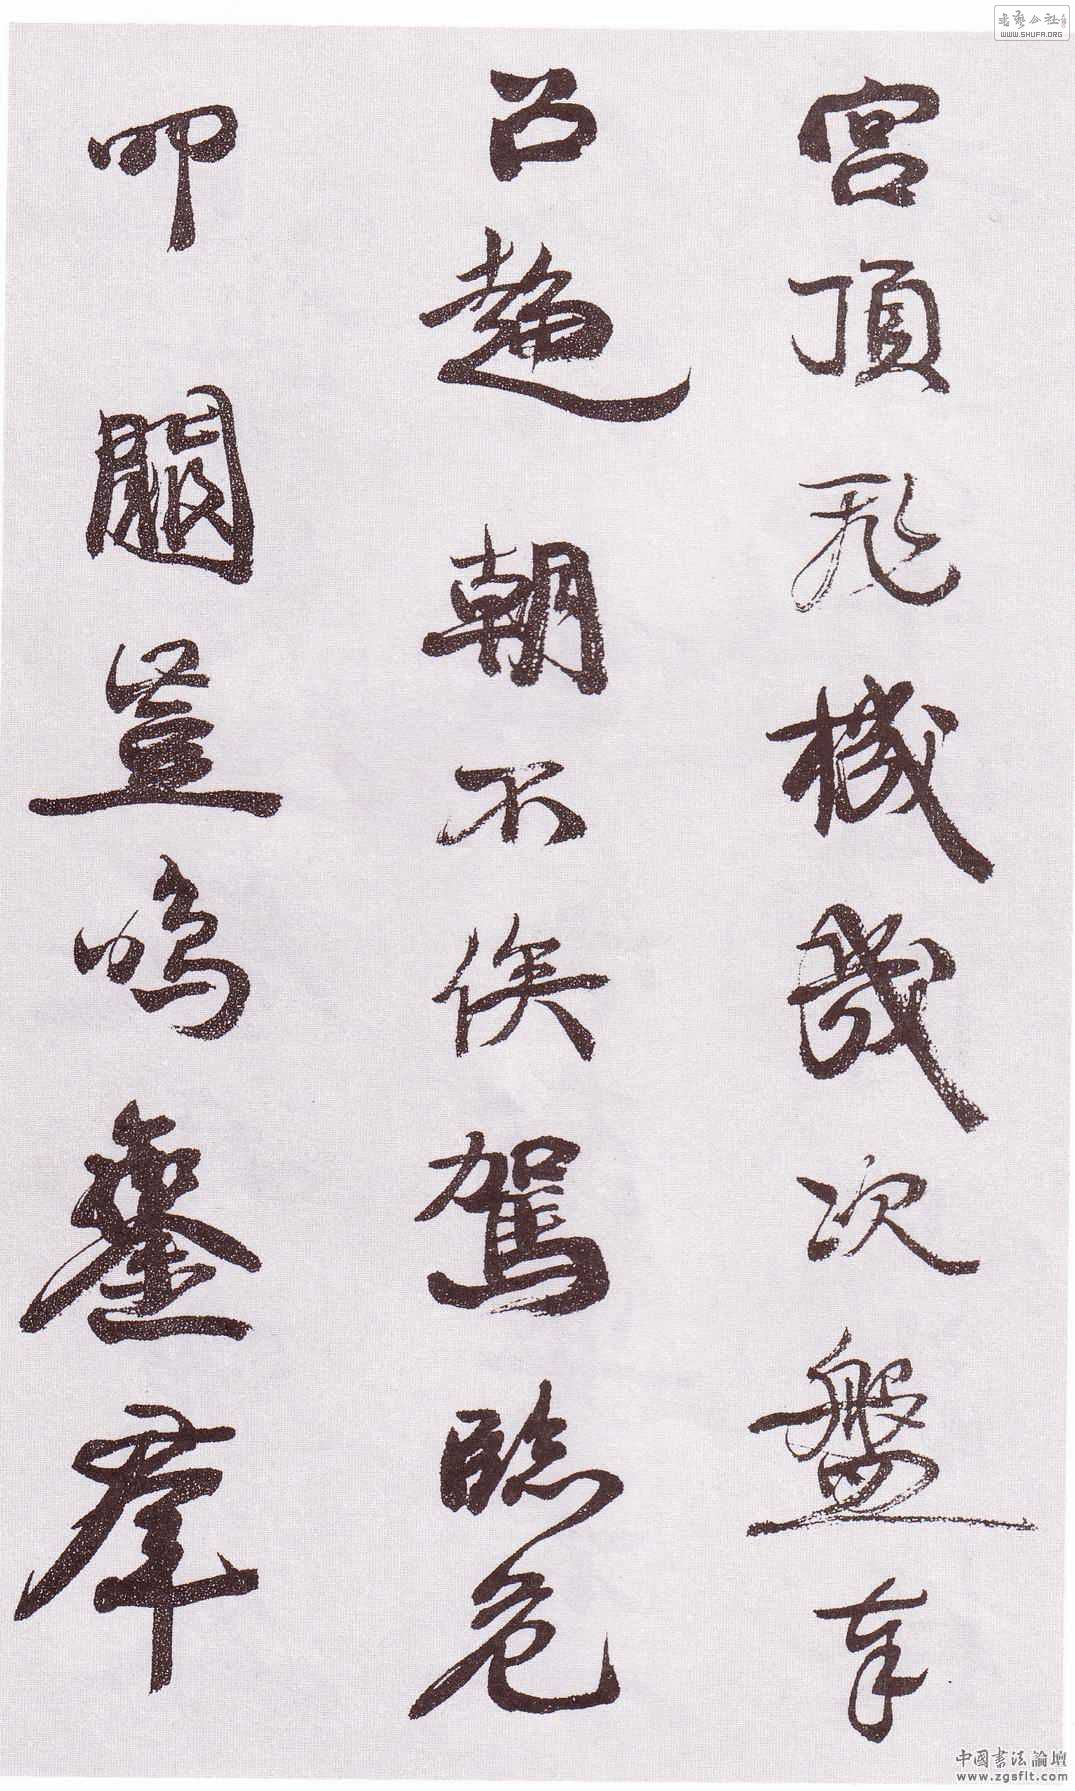 宮頂飛機幾次盤奉
召趨朝不俟駕臨危
叩闕豈鳴鑾群
書藝公社
WWW.SHUFA.ORG
中國書法論壇
www.zgsflt.com